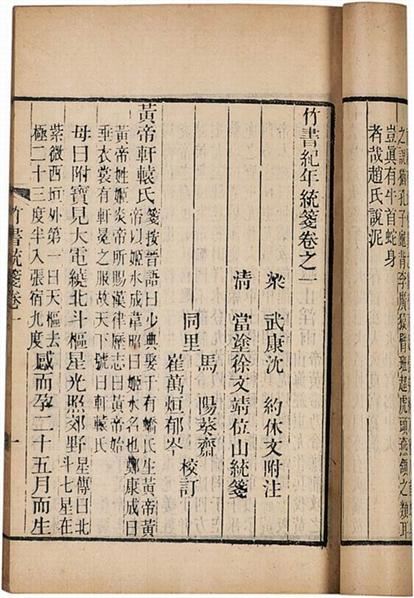 之說猶孔子龜背李膺猨臂班超虎頭燕頷之類耳
豈眞有牛首蛇身
者哉趙氏說泥
竹書紀年統箋卷之一
梁 武康沈 約休文附注
清 當塗徐文靖位山統箋
馬 陽葵齋
同里
崔萬烜郁岑
校訂
黃帝軒轅氏
箋按晉語曰少典娶于有蟜氏生黃帝黃
帝以姬水成韋昭曰姬水名也鄭康成曰
黃帝姓姬炎帝所賜漢律歷志曰黃帝始
垂衣裳有軒冕之服故天下號曰軒轅氏
母曰附寶見大電繞北斗樞星光照郊野
星傳曰北
斗七星在
紫微西垣外第一曰天樞去
極二十三度半入張宿九度
感而孕二十五月而生
竹書統箋卷一
一